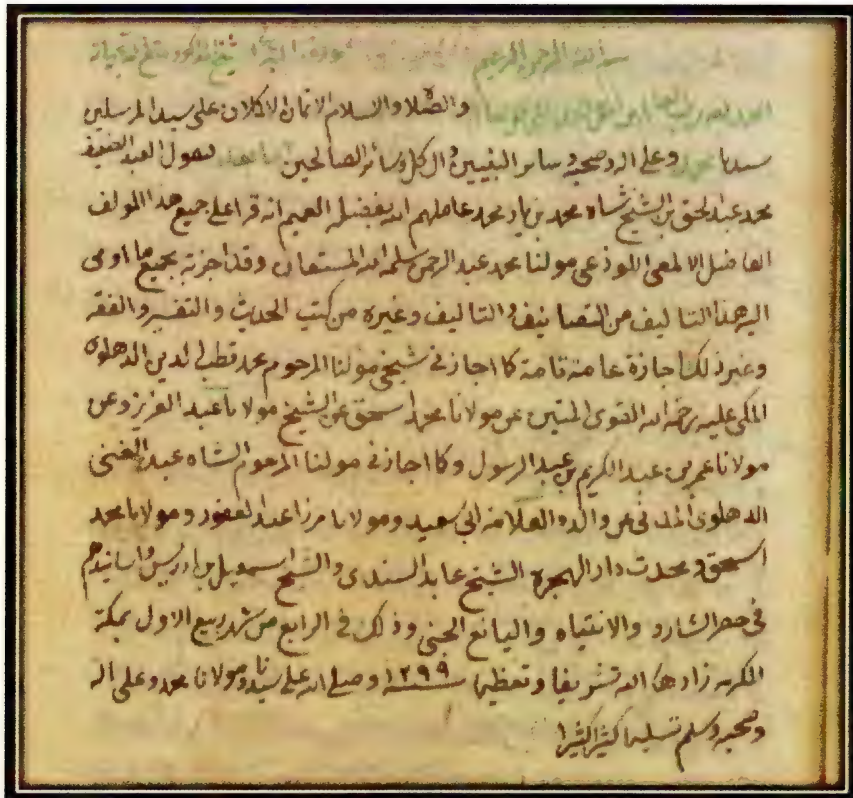 بسم الله الرحمن الرحيم صورة الشيخ المذكور متع الله بحياته
الحمد لله رب العالمين والصلاة والسلام الاتمان الاكملان على سيد المرسلين
سيدنا محمد وعلى اله وصحبه وسائر النبيين وال كل وسائر الصالحين اما بعد فيقول العبد الضعيف
محمد عبد الحق بن الشيخ شاه محمد بن يار محمد عاملهم الله بفضله العميم انه قرا على جميع هذا المولف
الفاضل الالمعى اللوذعى مولنا محمد عبد الرحمن سلمه الله المستعان وقد اجزته بجميع ما اومى
اليه هذا التاليف من التصانيف والتاليف وغيره من كتب الحديث والتفسير والفقه
وغير ذلك اجازة عامة تامة كما اجازنى شيخى مولنا المرحوم محمد قطب الدين الدهلوى
المكى عليه رحمة الله القوى المتين عن مولانا محمد اسحق عن الشيخ مولانا عبد العزيز وعن
مولانا عمر بن عبد الكريم بن عبد الرسول وكما اجازنى مولنا المرحوم الشاه عبد الغنى
الدهلوى المدنى عن والده العلامه ابى سعيد ومولانا مرزا عبد الغفور ومولانا محمد
اسحق ومحدث دار الهجرة الشيخ عابد السندى والشيخ اسمعيل بن ادريس واسانيدهم
فى حصر الشارد والانتباه واليانع الجنى وذلك فى الرابع من شهر ربيع الاول بمكة
المكرمه زادها الله تشريفا وتعظيما سنة ١٢٩٩ وصلى الله على سيدنا ومولانا محمد وعلى اله
وصحبه وسلم تسليما كثيرا كثيرا